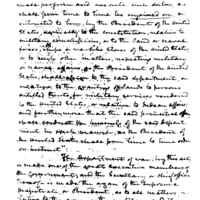 shall perform and execute such duties, as
shall from time to time be enjoined on or
entrusted to him, by the President of the United
States, agreeably to the constitution, relative to
military commissions, or to the land or naval
forces, ships or warlike stores of the United States,
or to such other matters, respecting military
or naval affairs, as the President of the United
States, shall assign to the said department, or
relative to the granting of lands to persons
entitled thereto, for military services rendered
to the United States, or relative to Indian affairs;
and furthermore, that the said principal officer
shall conduct the business of the said depart-
ment in such manner, as the President of
the United States shall from time to time order
or instruct.
The department of war, by this act
is made one of the executive
the Government, and the Secretary or chief officer
thereof is made the organ of the Supreme
Magistrate, or President, as to all matters
relating to the